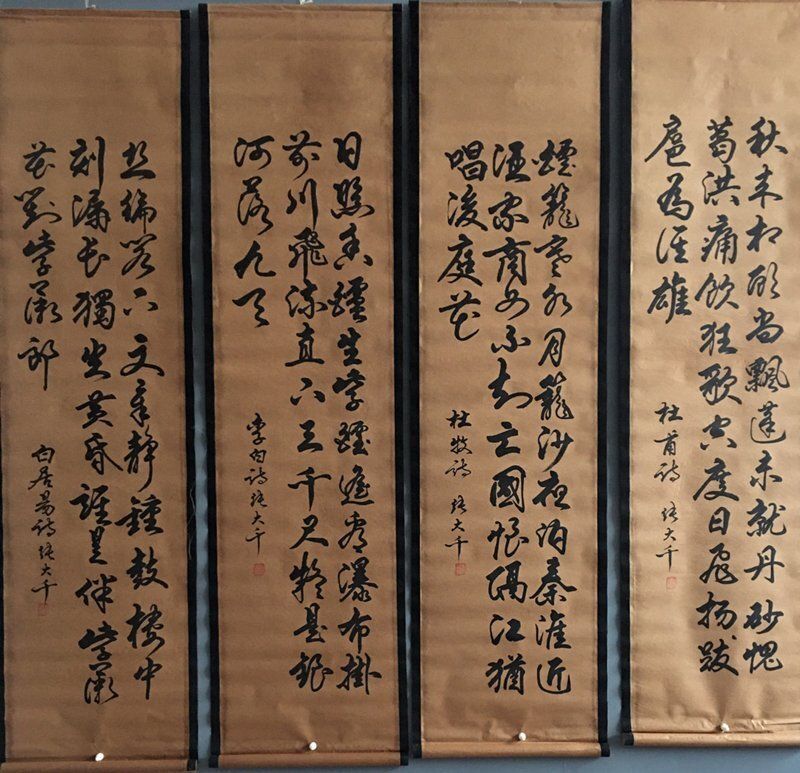 秋来相顧尚飄蓬未就丹砂愧
葛洪痛飲狂歌空度日飛揚跋
扈為誰雄
杜甫詩 張大千
煙籠寒水月籠沙夜泊秦淮近
酒家商女不知亡國恨隔江猶
唱後庭花
杜牧詩 張大千
日照香爐生紫煙遙看瀑布掛
前川飛流直下三千尺疑是銀
河落九天
李白詩 張大千
絲綸閣下文章靜鐘鼓樓中
刻漏長獨坐黃昏誰是伴紫薇
花對紫薇郎
白居易詩 張大千